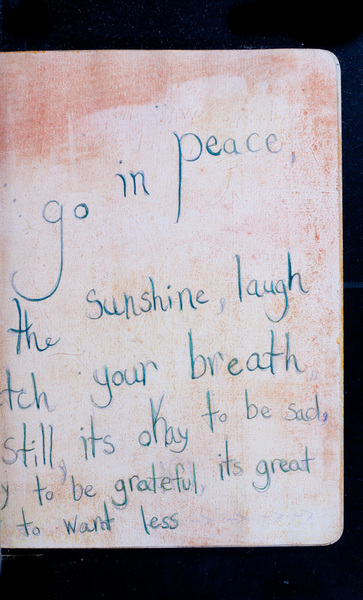 go in peace,
the sunshine, laugh
tch your breath,
still, its okay to be sad,
y to be grateful, its great
to want less